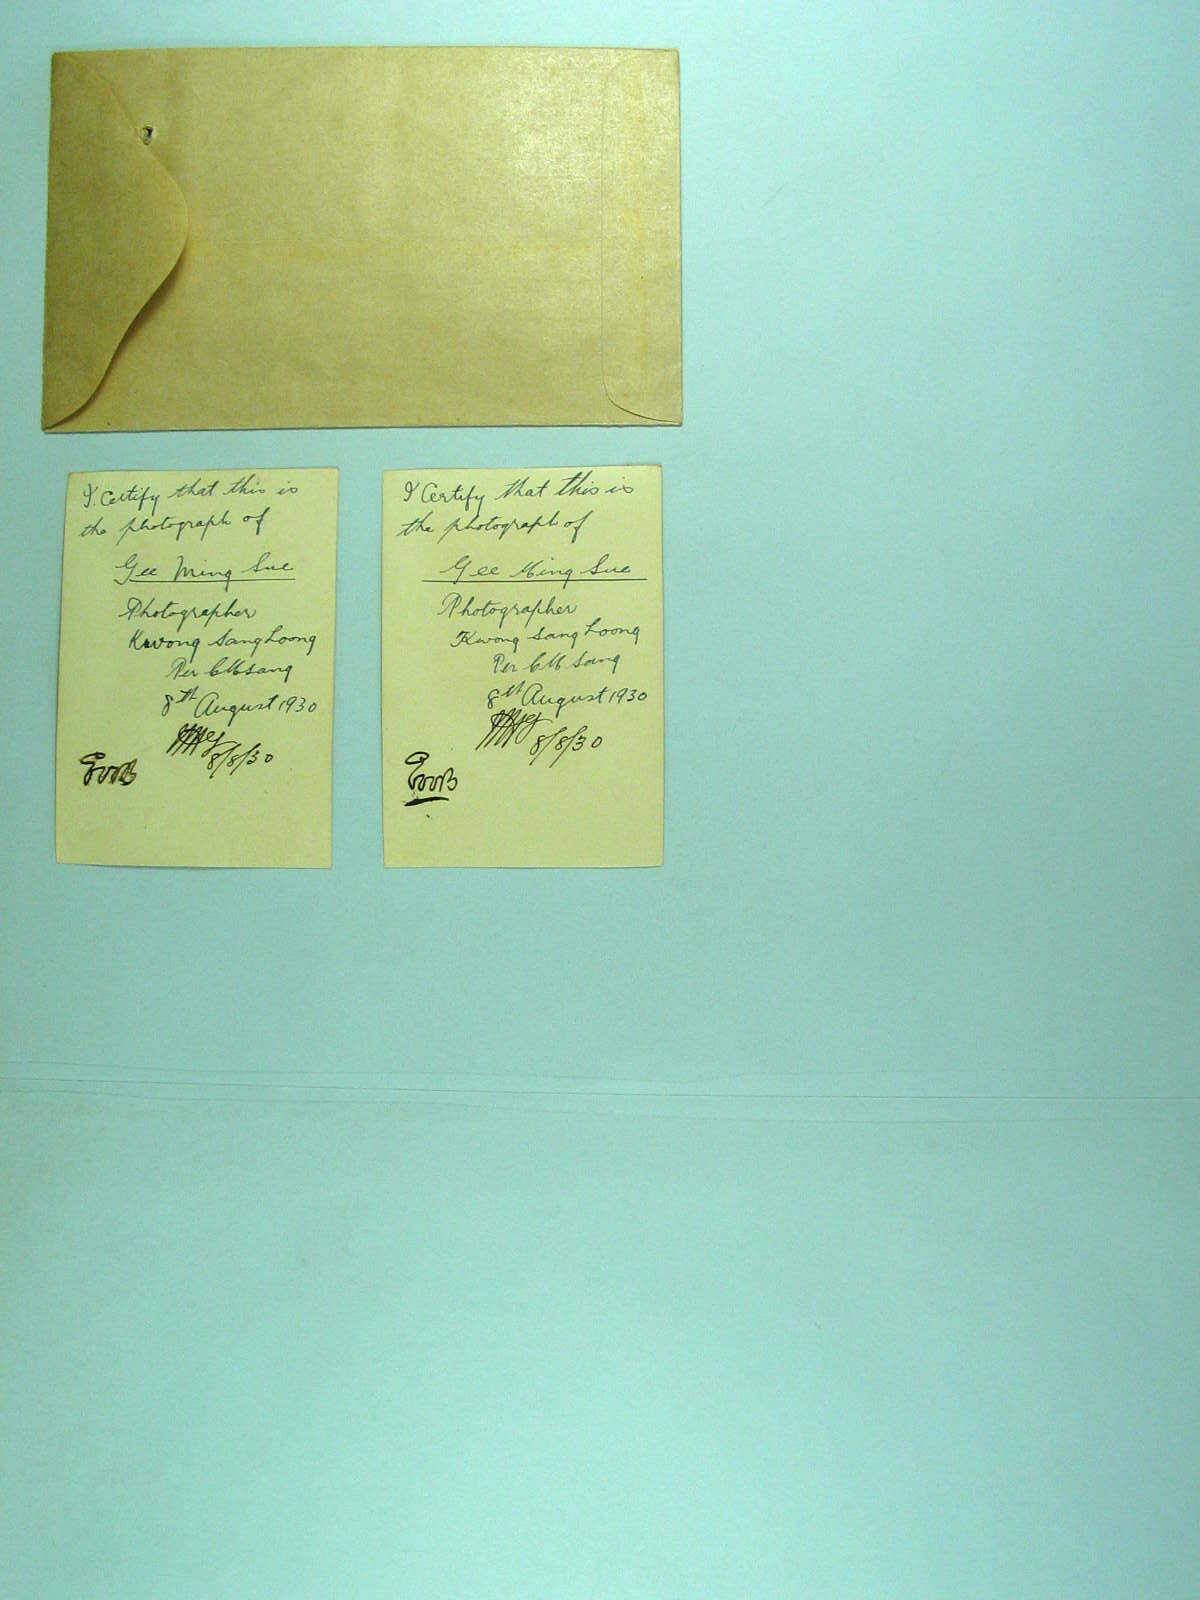 I Certify that this is
the photograph of
Gee Ming Sue
Photographer
Kwong Sang Loong
Per
8th August 1930
8/8/30
I Certify that this is
the photograph of
Gee Ming Sue
Photographer
Kwong Sang Loong
Per
8th August 1930
8/8/30